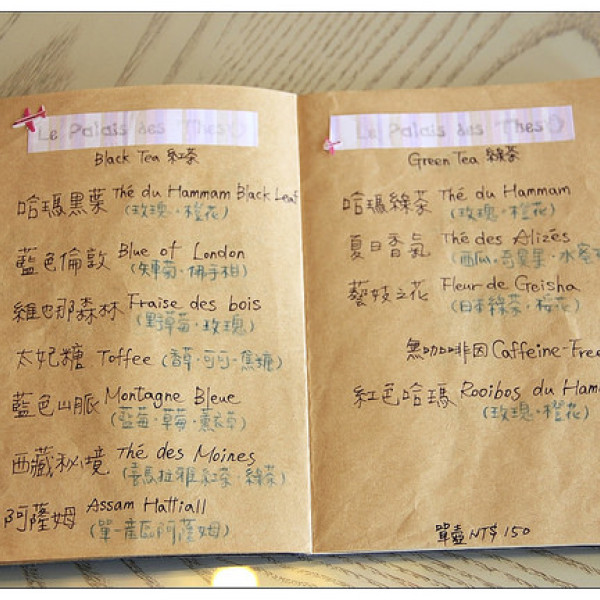 Le Palais des Thés
Black Tea 紅茶
哈瑪黑葉 Thé du Hammam Black Leaf
(玫瑰·橙花)
藍色倫敦 Blue of London
(矢車菊·佛手柑)
維也那森林 Fraise des bois
(野草莓·玫瑰)
太妃糖 Toffee (香草·可可·焦糖)
藍色山脈 Montagne Bleue
(藍莓·草莓·薰衣草)
西藏秘境 Thé des Moines
(喜馬拉雅紅茶·綠茶)
阿薩姆 Assam Hattiall
(單一產區阿薩姆)
Le Palais des Thés
Green Tea 綠茶
哈瑪綠茶 Thé du Hammam
(玫瑰·橙花)
夏日香氣 Thé des Alizés
(西瓜·奇異果·水蜜
藝妓之花 Fleur de Geisha
(日本綠茶·梅花)
無咖啡因 Caffeine-Free
紅色哈瑪 Rooibos du Ham
(玫瑰·橙花)
單壺 NT$ 150